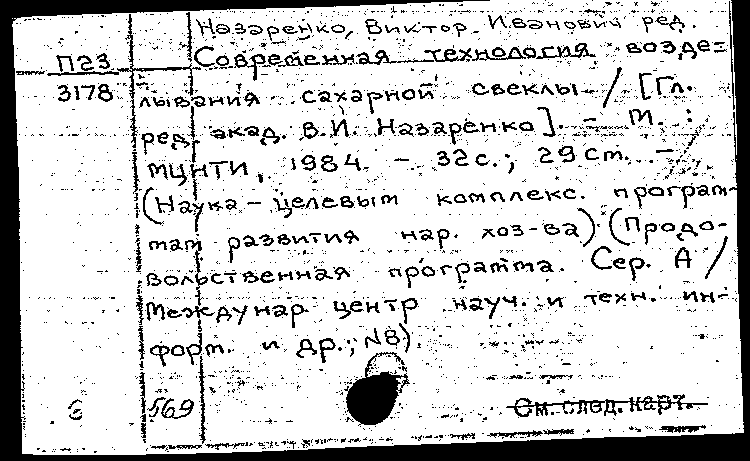 Назаренко, Виктор Иванович ред.
П23 Современная технология возде=
3178 лывания сахарной свеклы / [Гл.
ред. акад. В.И. Назаренко]. – М. :
МЦНТИ, 1984. – 32с.; 29 см. –
(Наука – целевым комплекс. програм-
мам развития нар. хоз-ва). (Продо-
вольственная программа. Сер. А /
Междунар центр науч. и техн. ин-
форм. и др.; №8).
569 См. след. карт.